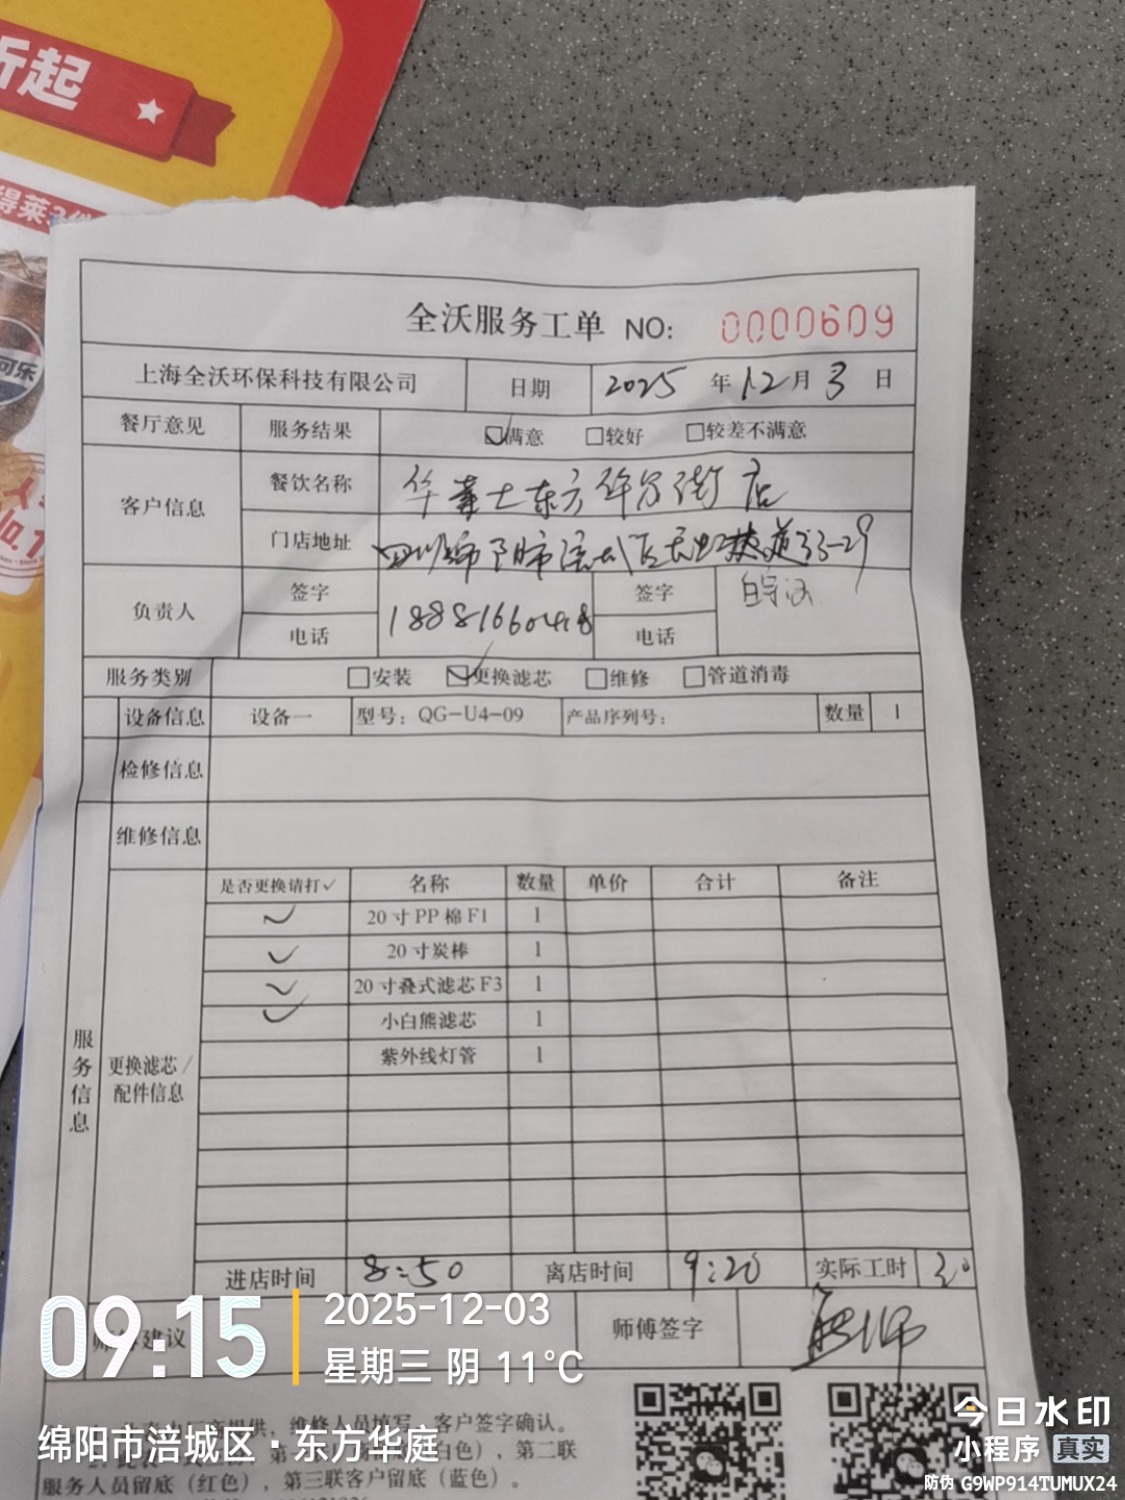 折起
得莱
可乐
全沃服务工单 NO: 0000609
上海全沃环保科技有限公司 日期 2025 年 12 月 3 日
餐厅意见 服务结果 ☑满意 □较好 □较差不满意
客户信息 餐饮名称 华莱士东方 街店
门店地址 四川绵阳市涪城区 33-29
负责人 签字 签字
电话 18881660418 电话
服务类别 □安装 ☑更换滤芯 □维修 □管道消毒
设备信息 设备一 型号：QG-U4-09 产品序列号： 数量 1
检修信息
维修信息
服务信息
更换滤芯/
配件信息
是否更换请打✓ 名称 数量 单价 合计 备注
✓ 20寸PP棉F1 1
✓ 20寸炭棒 1
✓ 20寸叠式滤芯F3 1
✓ 小白熊滤芯 1
紫外线灯管 1
进店时间 8:50 离店时间 9:20 实际工时
建议 师傅签字
维修人员填写，客户签字确认。
白色），第二联
服务人员留底（红色），第三联客户留底（蓝色）。
09:15
2025-12-03
星期三 阴 11°C
绵阳市涪城区·东方华庭
今日水印
小程序 真实
防伪 G9WP914TUMUX24